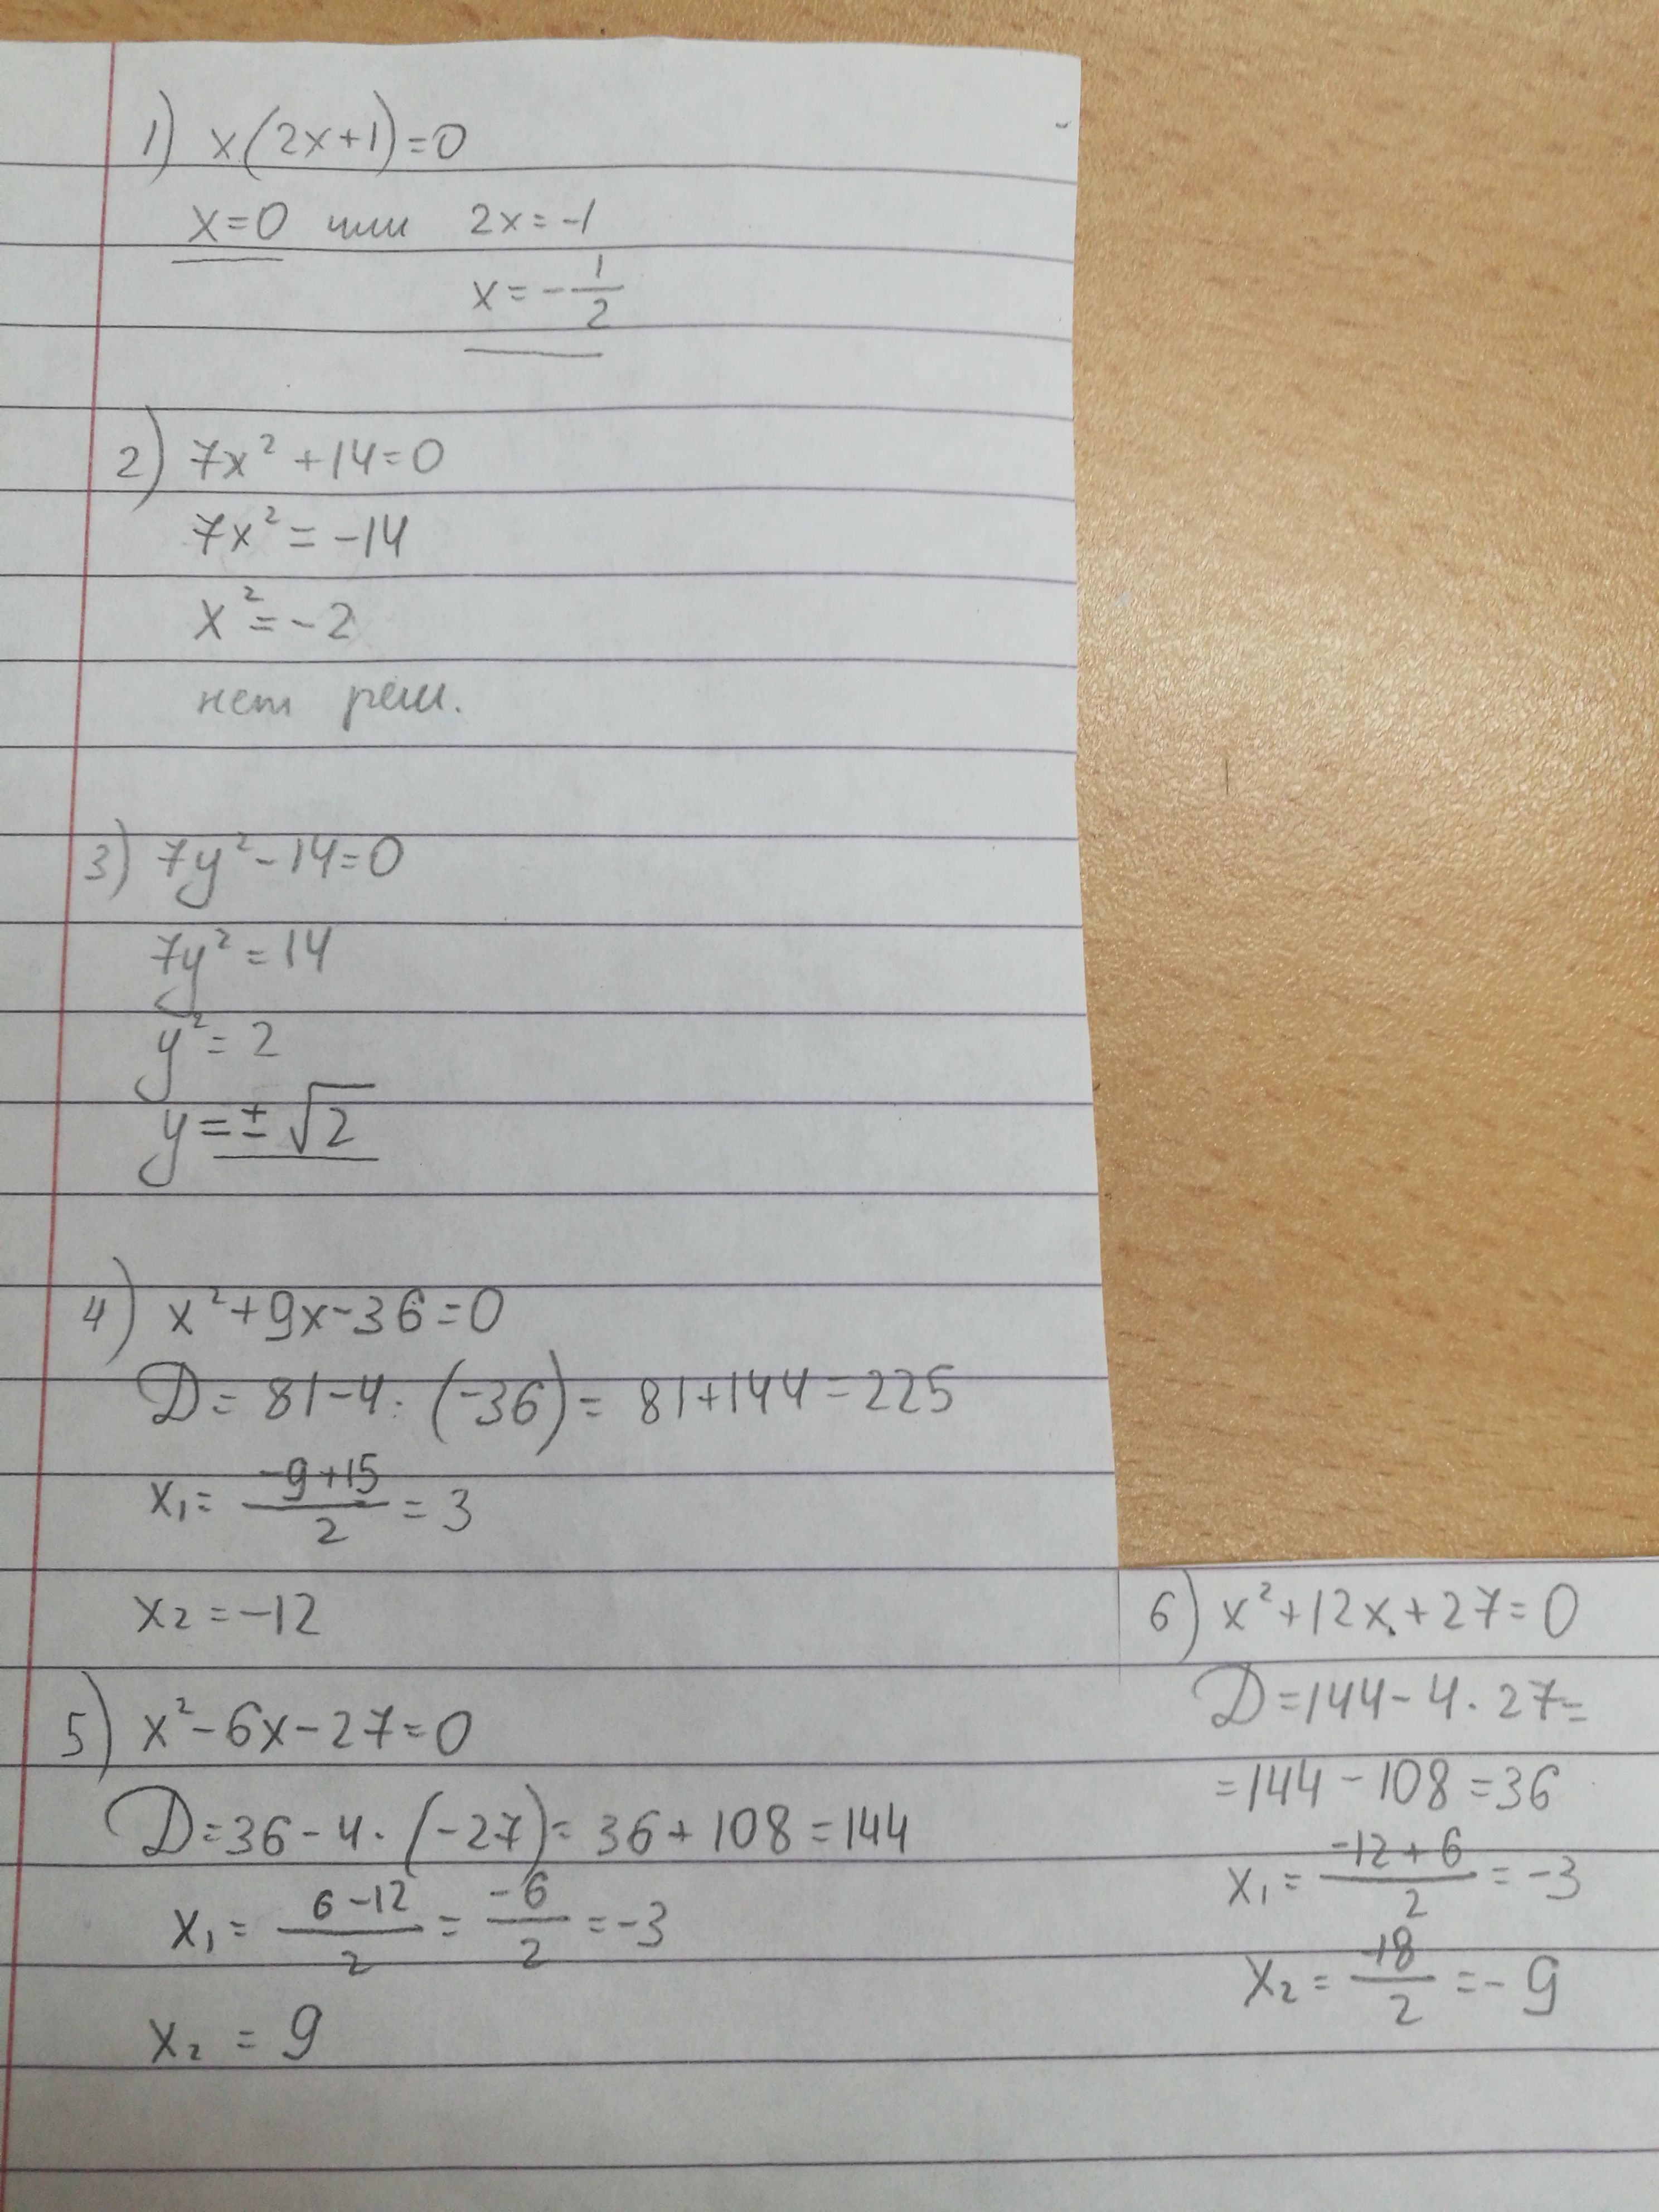 1) x(2x+1)=0
x=0 или 2x=-1
x=-1/2
2) 7x²+14=0
7x²=-14
x²=-2
нет реш.
3) 7y²-14=0
7y²=14
y²=2
y=±√2
4) x²+9x-36=0
D=81-4·(-36)=81+144=225
x₁=(-9+15)/2=3
x₂=-12
5) x²-6x-27=0
D=36-4·(-27)=36+108=144
x₁=(6-12)/2=-6/2=-3
x₂=9
6) x²+12x+27=0
D=144-4·27=
=144-108=36
x₁=(-12+6)/2=-3
x₂=-18/2=-9